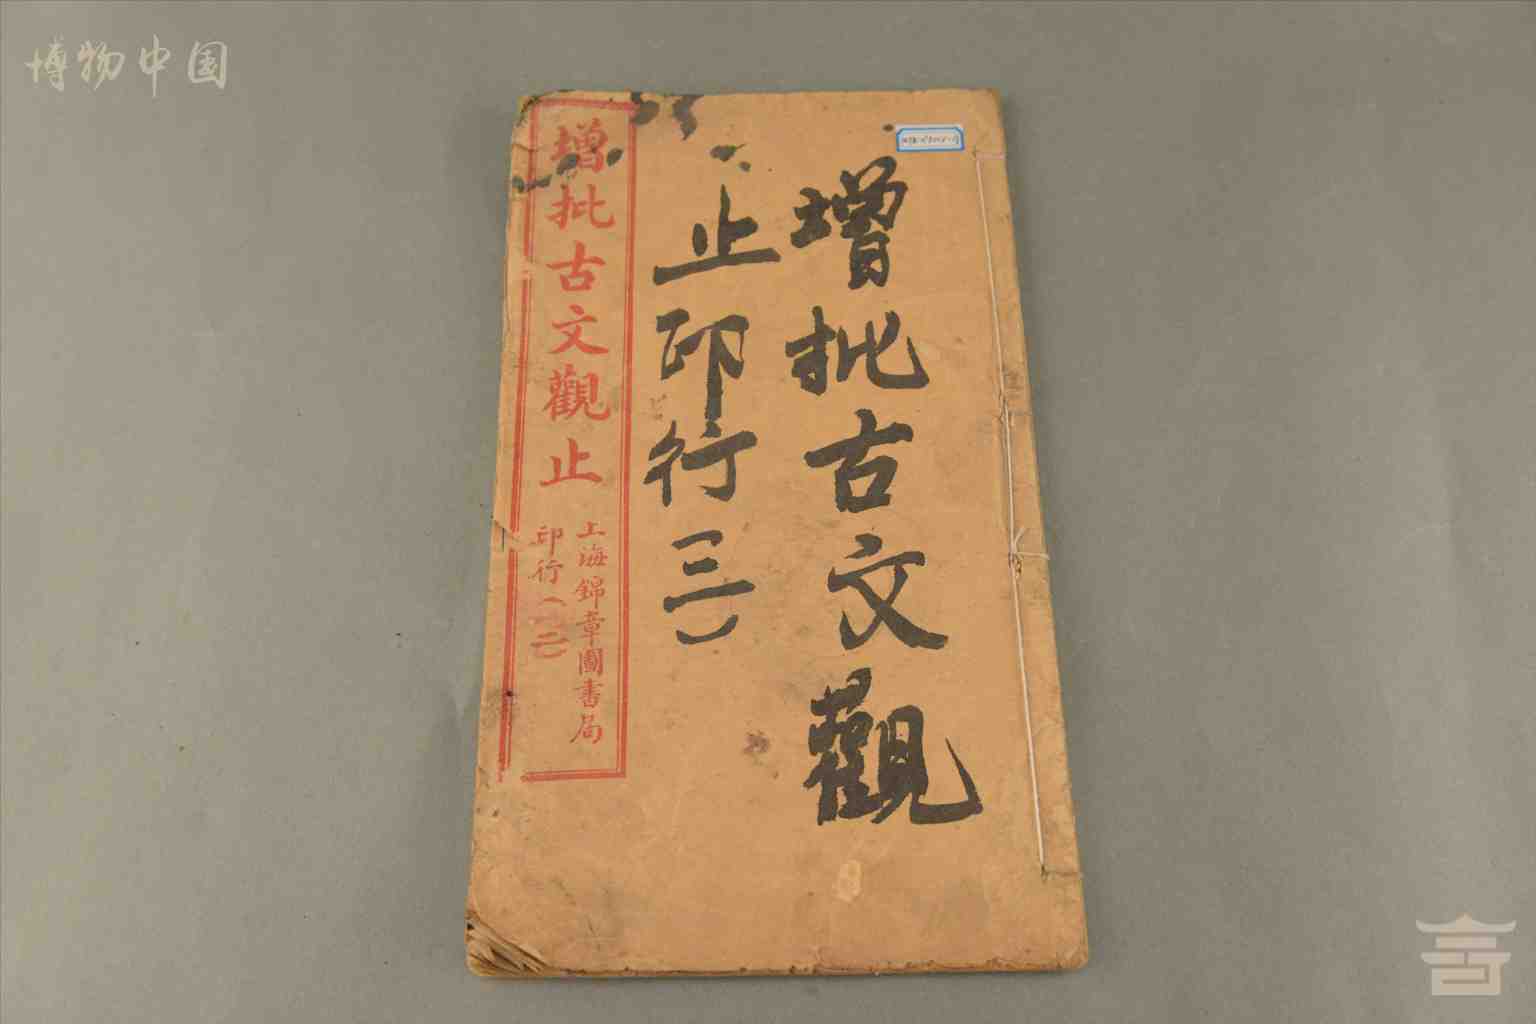 博物中国
增批古文觀
止印行三）
增批古文觀止
上海錦章圖書局
印行（二）